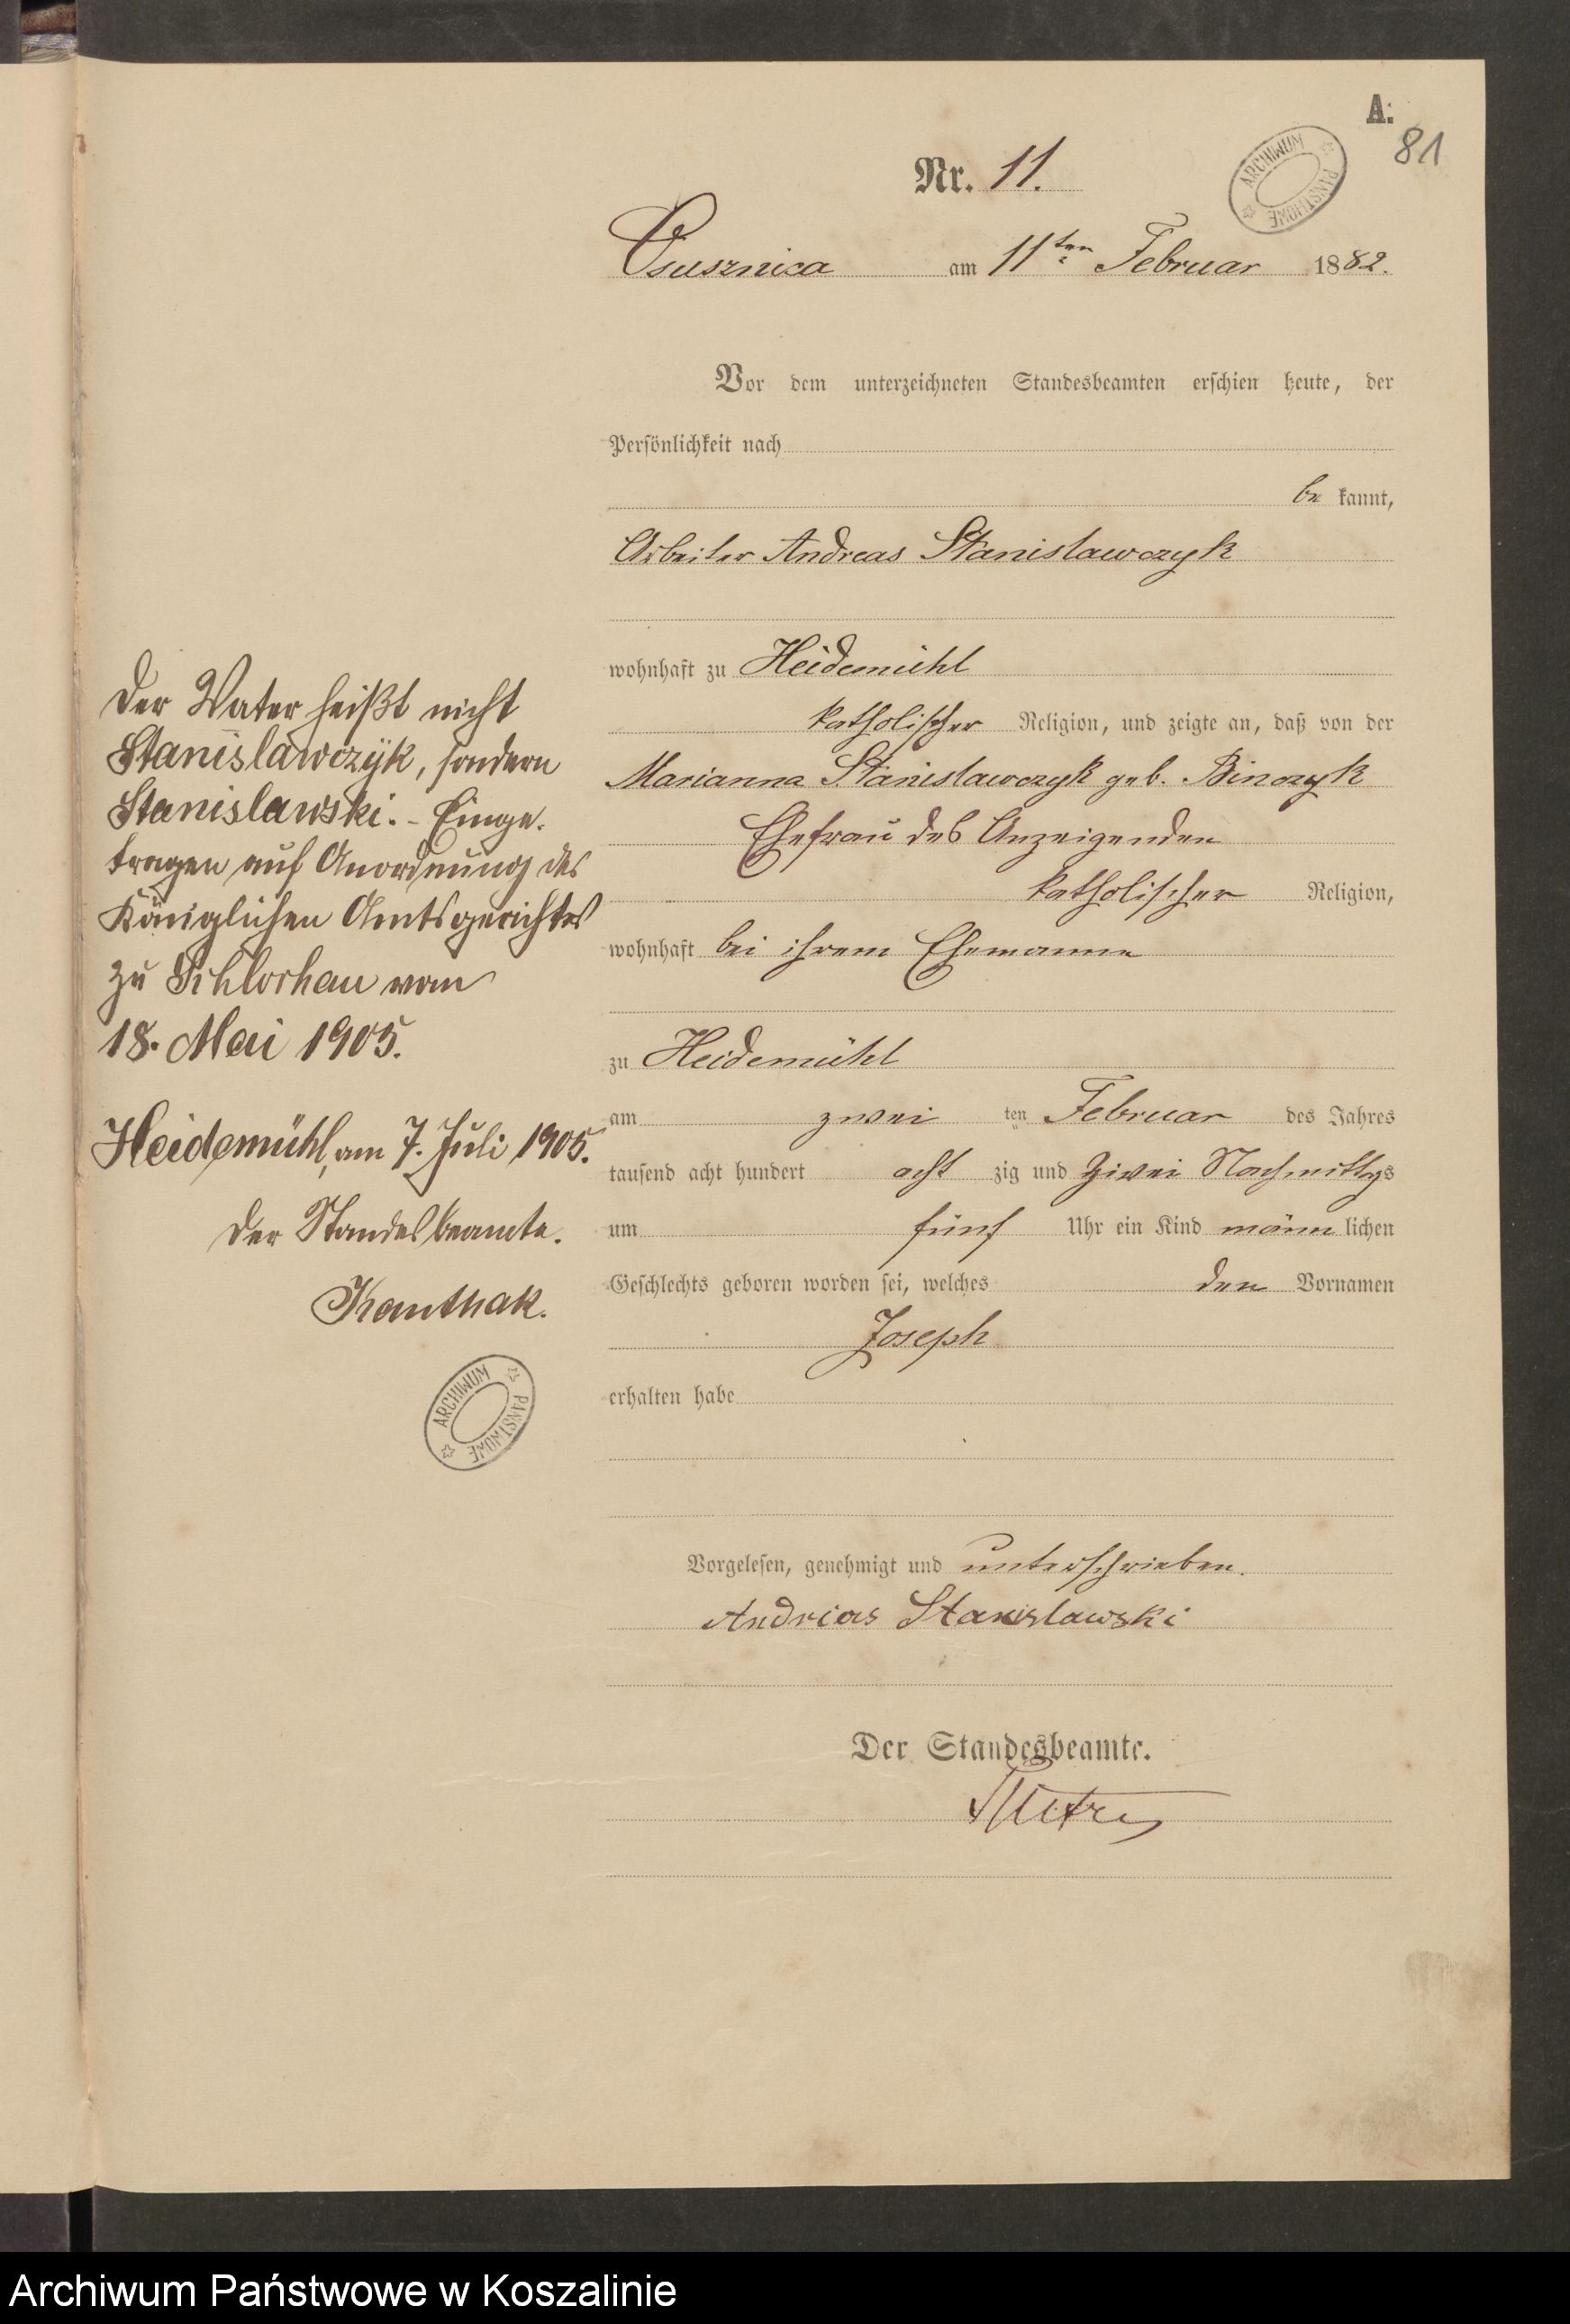 A.
81
ARCHIWUM PAŃSTWOWE
Nr. 11.
Osusznica am 11ten Februar 1882.
Vor dem unterzeichneten Standesbeamten erschien heute, der
Persönlichkeit nach
be kannt,
Arbeiter Andreas Stanislawczyk
wohnhaft zu Heidemühl
katholischer Religion, und zeigte an, daß von der
Marianna Stanislawczyk geb. Binczyk
Ehefrau des Anzeigenden
katholischer Religion,
wohnhaft bei ihrem Ehemanne
zu Heidemühl
am zwei ten Februar des Jahres
tausend acht hundert acht zig und Zwei Nachmittags
um fünf Uhr ein Kind männ lichen
Geschlechts geboren worden sei, welches den Vornamen
Joseph
erhalten habe
Vorgelesen, genehmigt und unterschrieben.
Andrias Stanislawski
Der Standesbeamte.
Der Vater heißt nicht
Stanislawczyk, sondern
Stanislawski. - Einge-
tragen auf Anordnung des
Königlichen Amtsgerichtes
zu Schlochau vom
18. Mai 1905.
Heidemühl, am 7. Juli 1905.
Der Standesbeamte.
Kanthak.
ARCHIWUM PAŃSTWOWE
Archiwum Państwowe w Koszalinie